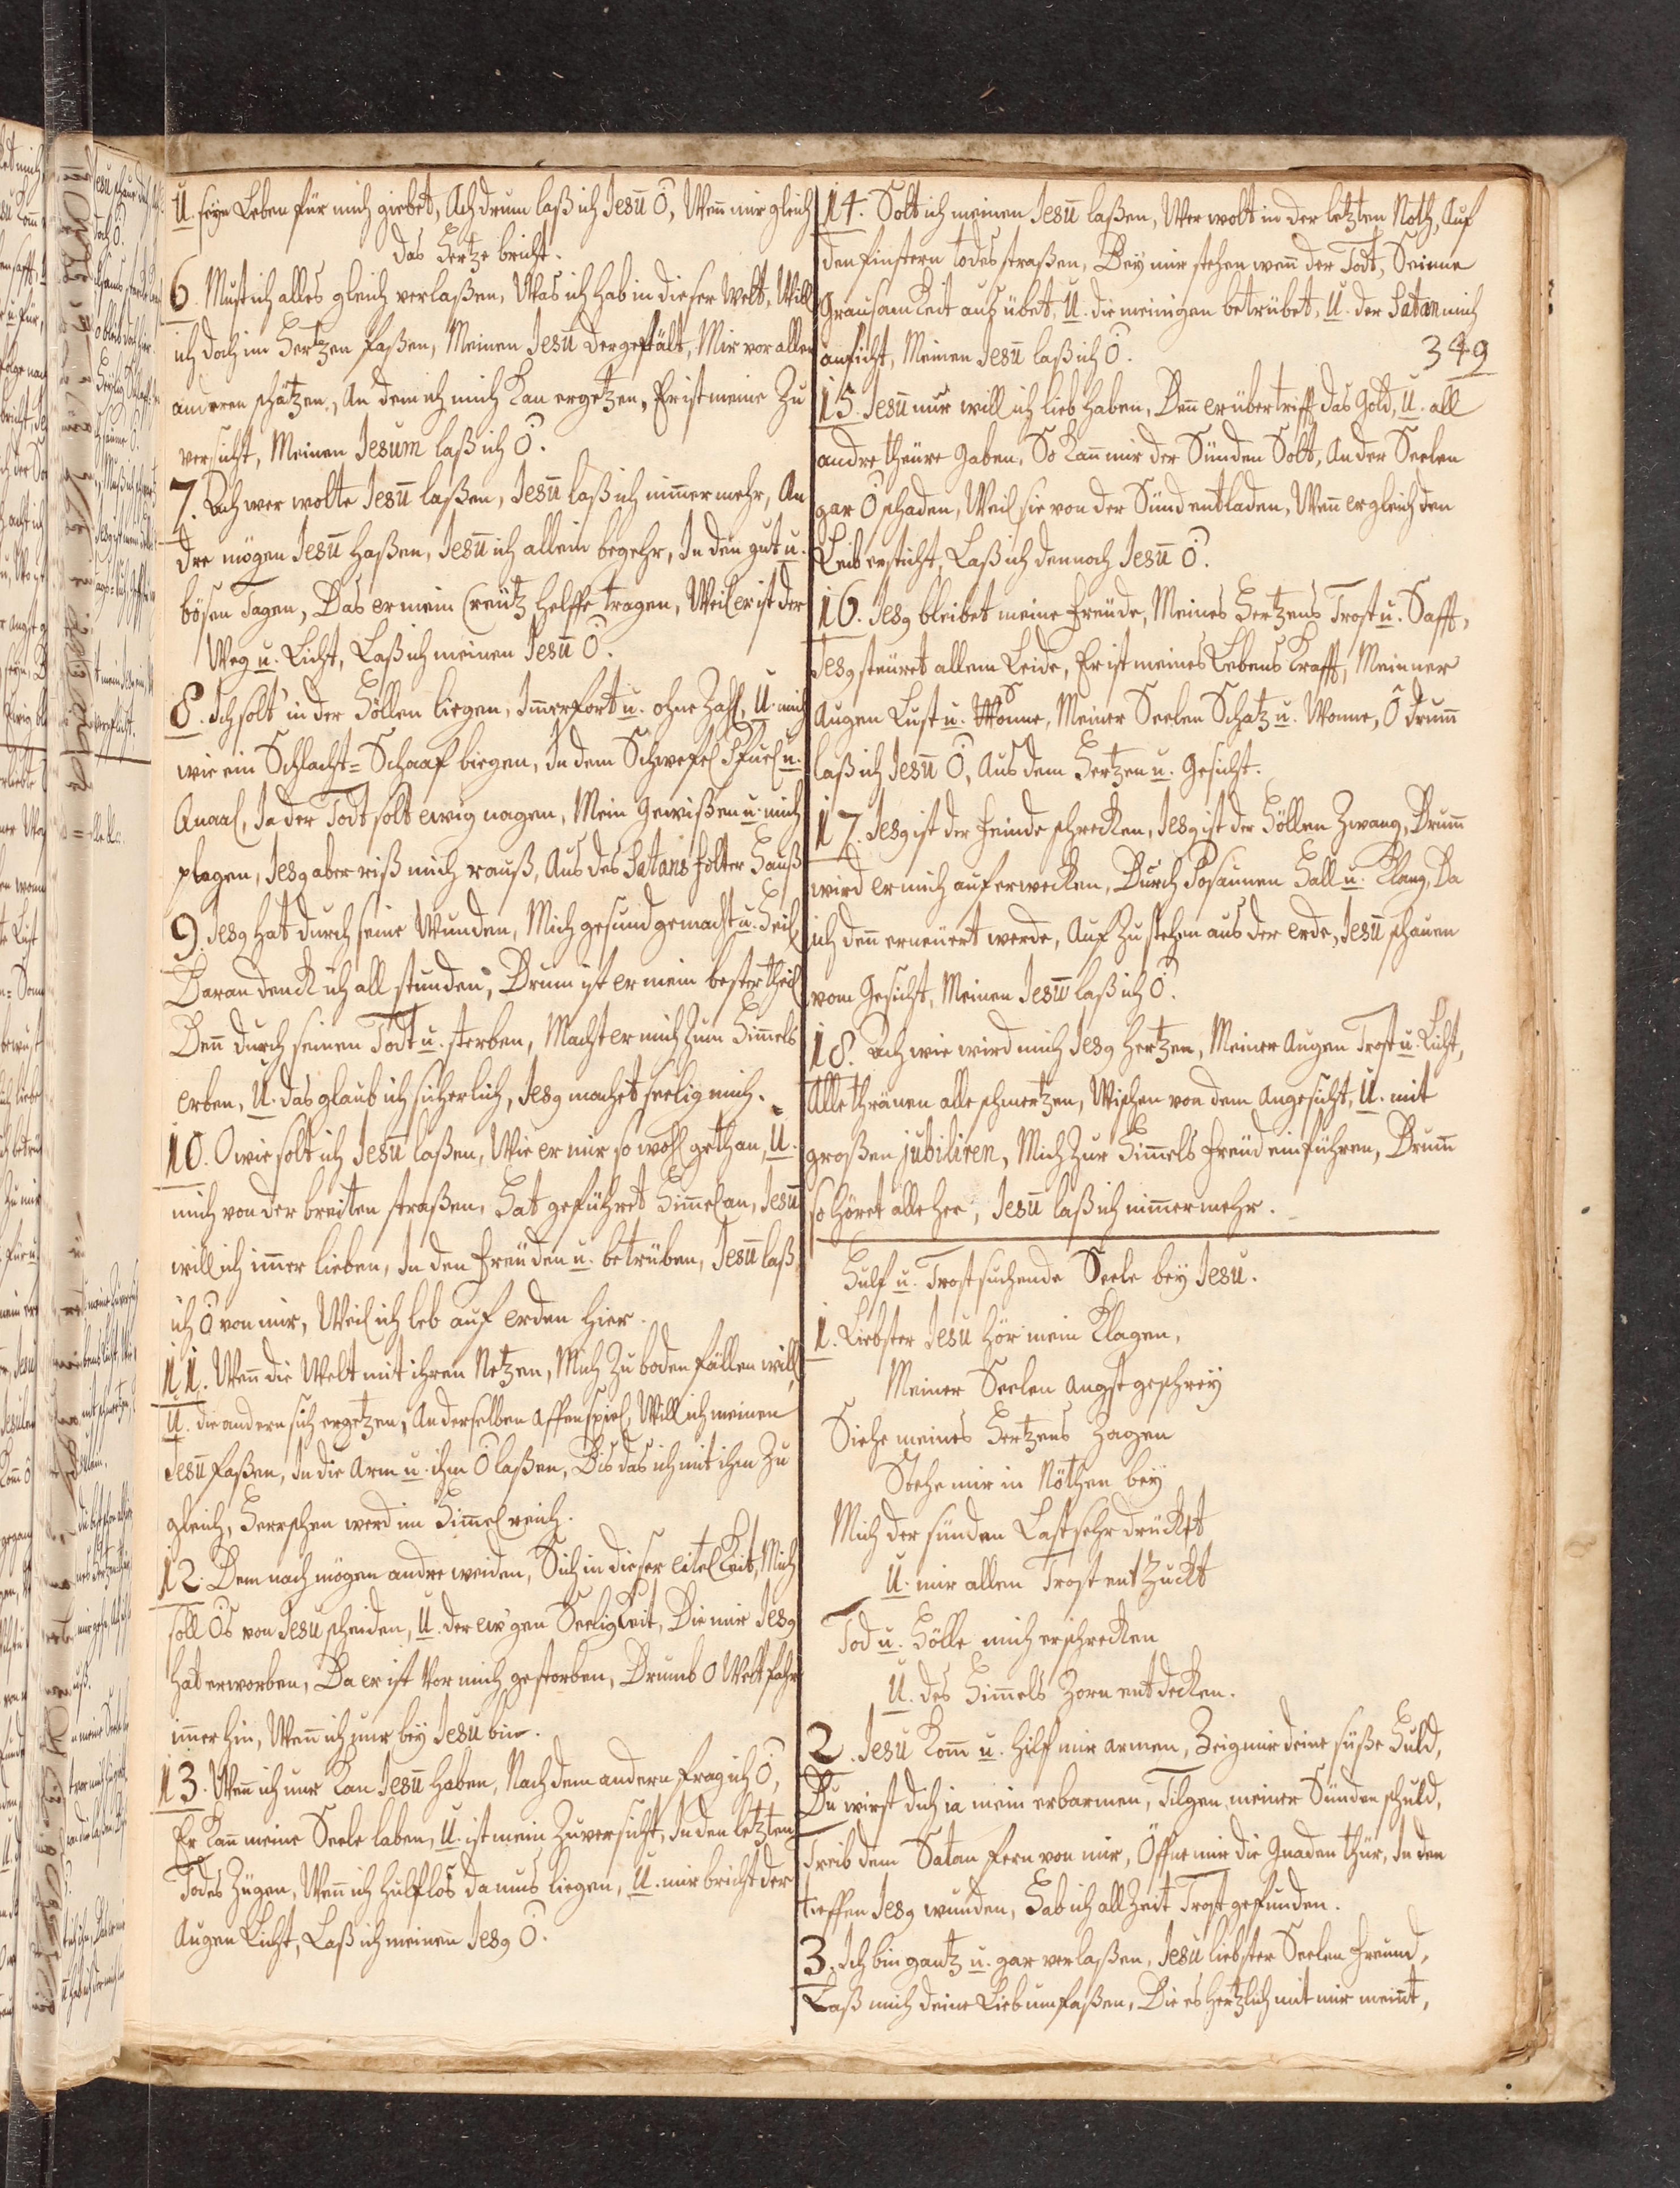 U. seyn Leben für mich giebet, Ach drum laß ich Jesū O, Wen̄ mir gleich
das Hertze bricht.
6. Must ich alles gleich verlaßen, Was ich hab in dieser Welt, Will
ich doch im Hertzen faßen, Meinen Jesū dergestalt, Mir vor allen
anderen schätzen, An dem ich mich kan ergetzen, Er ist meine Zu
versicht, Meinen Jesum laß ich O.
7. Doch wer wolte Jesū laßen, Jesū laß ich nim̄ermehr, An
dre mögen Jesū haßen, Jesū ich allein begehr, In den gut u.
bösen Tagen, Das er mein Creutz helffe tragen, Weil er ist der
Weg u. Licht, Laß ich meinen Jesū O.
8. Ich solt in der Höllen liegen, Im̄erfort u. ohne Zahl, U. mich
wie ein Schlacht=Schaaf biegen, In dem Schwefel Pfuel u.
Quaal, Ja der Todt solt ewig nagen, Mein Gewißen u. mich
plagen, Jesq aber riß mich rauß, Aus des Satans folter Hauß
9. Jesq hat durch seine Wunden, Mich gesund gemacht u. Heil,
Daran denck ich all stunden, Drum ist er mein bester theil
Den̄ durch seinen Todt u. sterben, Macht er mich zum Him̄els
erben, U. das glaub ich sicherlich, Jesq machet seelig mich.
10. O wie solt ich Jesū laßen, Wie er mir so wohl gethan, U.
mich von der breiten straßen, Hat geführet Him̄el an, Jesū
will ich im̄er lieben, In den Freuden u. betrüben, Jesū laß
ich O von mir, Weil ich leb auf erden hier.
11. Wen̄ die Welt mit ihren Netzen, Mich zu boden fällen will,
U. die andern sich ergetzen, An derselben Affenspiel, Will ich meinen
Jesū faßen, In die Arm u. ihm O laßen, Bis das ich mit ihm zu
gleich, Herrschen werd im Him̄el reich.
12. Dem nach mögen andre weiden, Sich in dieser eitelkeit, Mich
soll O's von Jesu scheiden, U. der ew'gen Seeligkeit, Die mir Jesq
hat erworben, Da er ist vor mich gestorben, Drumb O Welt fahr
im̄er hin, Wen̄ ich nur bey Jesu bin.
13. Wen̄ ich nur kan Jesū haben, Nach dem andern frag ich O,
Er kan̄ meine Seele laben, U. ist mein Zuversicht, In den letzten
Todes Zügen, Wen̄ ich hülflos da mus liegen, U. mir bricht der
Augen Licht, Laß ich meinen Jesq O.
14. Solt ich meinen Jesū laßen, Wer wolt in der letzten Noth, Auf
den finstern todes straßen, Bey mir stehen wen̄ der Todt, Seinne
Grausamkeit aus übet, U. die meinigen betrübet, U. der Satan mich
anficht, Meinen Jesū laß ich O.
349
15. Jesū nur will ich lieb haben, Den̄ er übertriff das Gold, U. all
andre theure Gaben, So kan̄ mir der Sünden Solt, An der Seelen
gar O schaden, Weil sie von der Sünd entladen, Wen̄ er gleich den
Leib ersticht, Laß ich dennoch Jesū O.
16. Jesq bleibet meine Freude, Meines Hertzens Trost u. Safft,
Jesq steuret allem Leide, Er ist meines Lebens Krafft, Meinner
Augen Lust u. Sonne, Meiner Seelen Schatz u. Wonne, O drum̄
laß ich Jesū O, Aus dem Hertzen u. Gesicht.
17. Jesq ist der Feinde schrecken, Jesq ist der Höllen Zwang, Drum̄
wird er mich auferwecken, Durch Posaunen Hall u. Klang, Da
ich den̄ erneuert werde, Auf zu stehen aus der erde, Jesū schauen
vom Gesicht, Meinen Jesū laß ich O.
18. Ach wie wird mich Jesq hertzen, Meiner Augen Trost u. Licht,
Alle thränen alle schmertzen, Wischen von dem Angesicht, U. mit
großen jubiliren, Mich zur Him̄els Freud einführen, Drum̄
so höret alle her, Jesū laß ich nim̄ermehr.
Hulf u. Trost suchende Seele bey Jesu.
1. Liebster Jesu hör mein Klagen,
Meiner Seelen Angst geschrey
Siehe meines Hertzens Zagen
Stehe mir in Nöthen bey
Mich der sünden Last sehr drückt
U. mir allen Trost entzuckt
Tod u. Hölle mich erschrecken
U. des Him̄els Zorn entdecken.
2. Jesu kom̄ u. hilf mir armen, Zeig mir deine süße Huld,
Du wirst dich ia mein erbarmen, Tilgen meiner Sünden schuld,
Treib dem Satan fern von mir, Öffne mir die Gnaden thür, In den
tieffen Jesq wunden, Hab ich all Zeit Trost gefunden.
3. Ich bin gantz u. gar verlaßen, Jesu liebster Seelen Freund,
Laß mich deine Lieb umfaßen, Die es hertzlich mit mir meint,